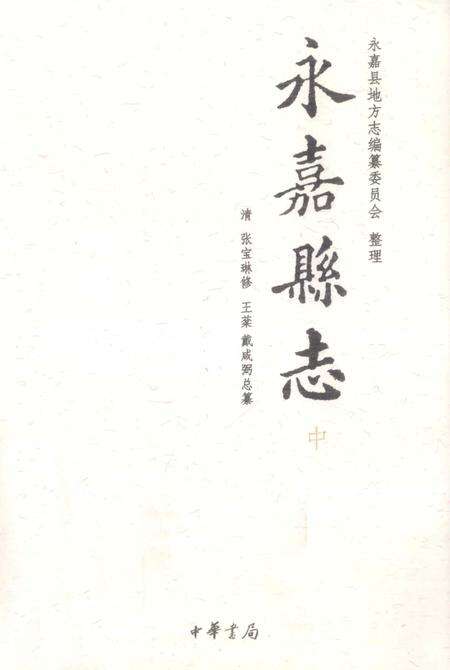 永嘉县地方志编纂委员会 整理
永嘉縣志
中
清 张宝琳修 王棻 戴咸弼总纂
中華書局